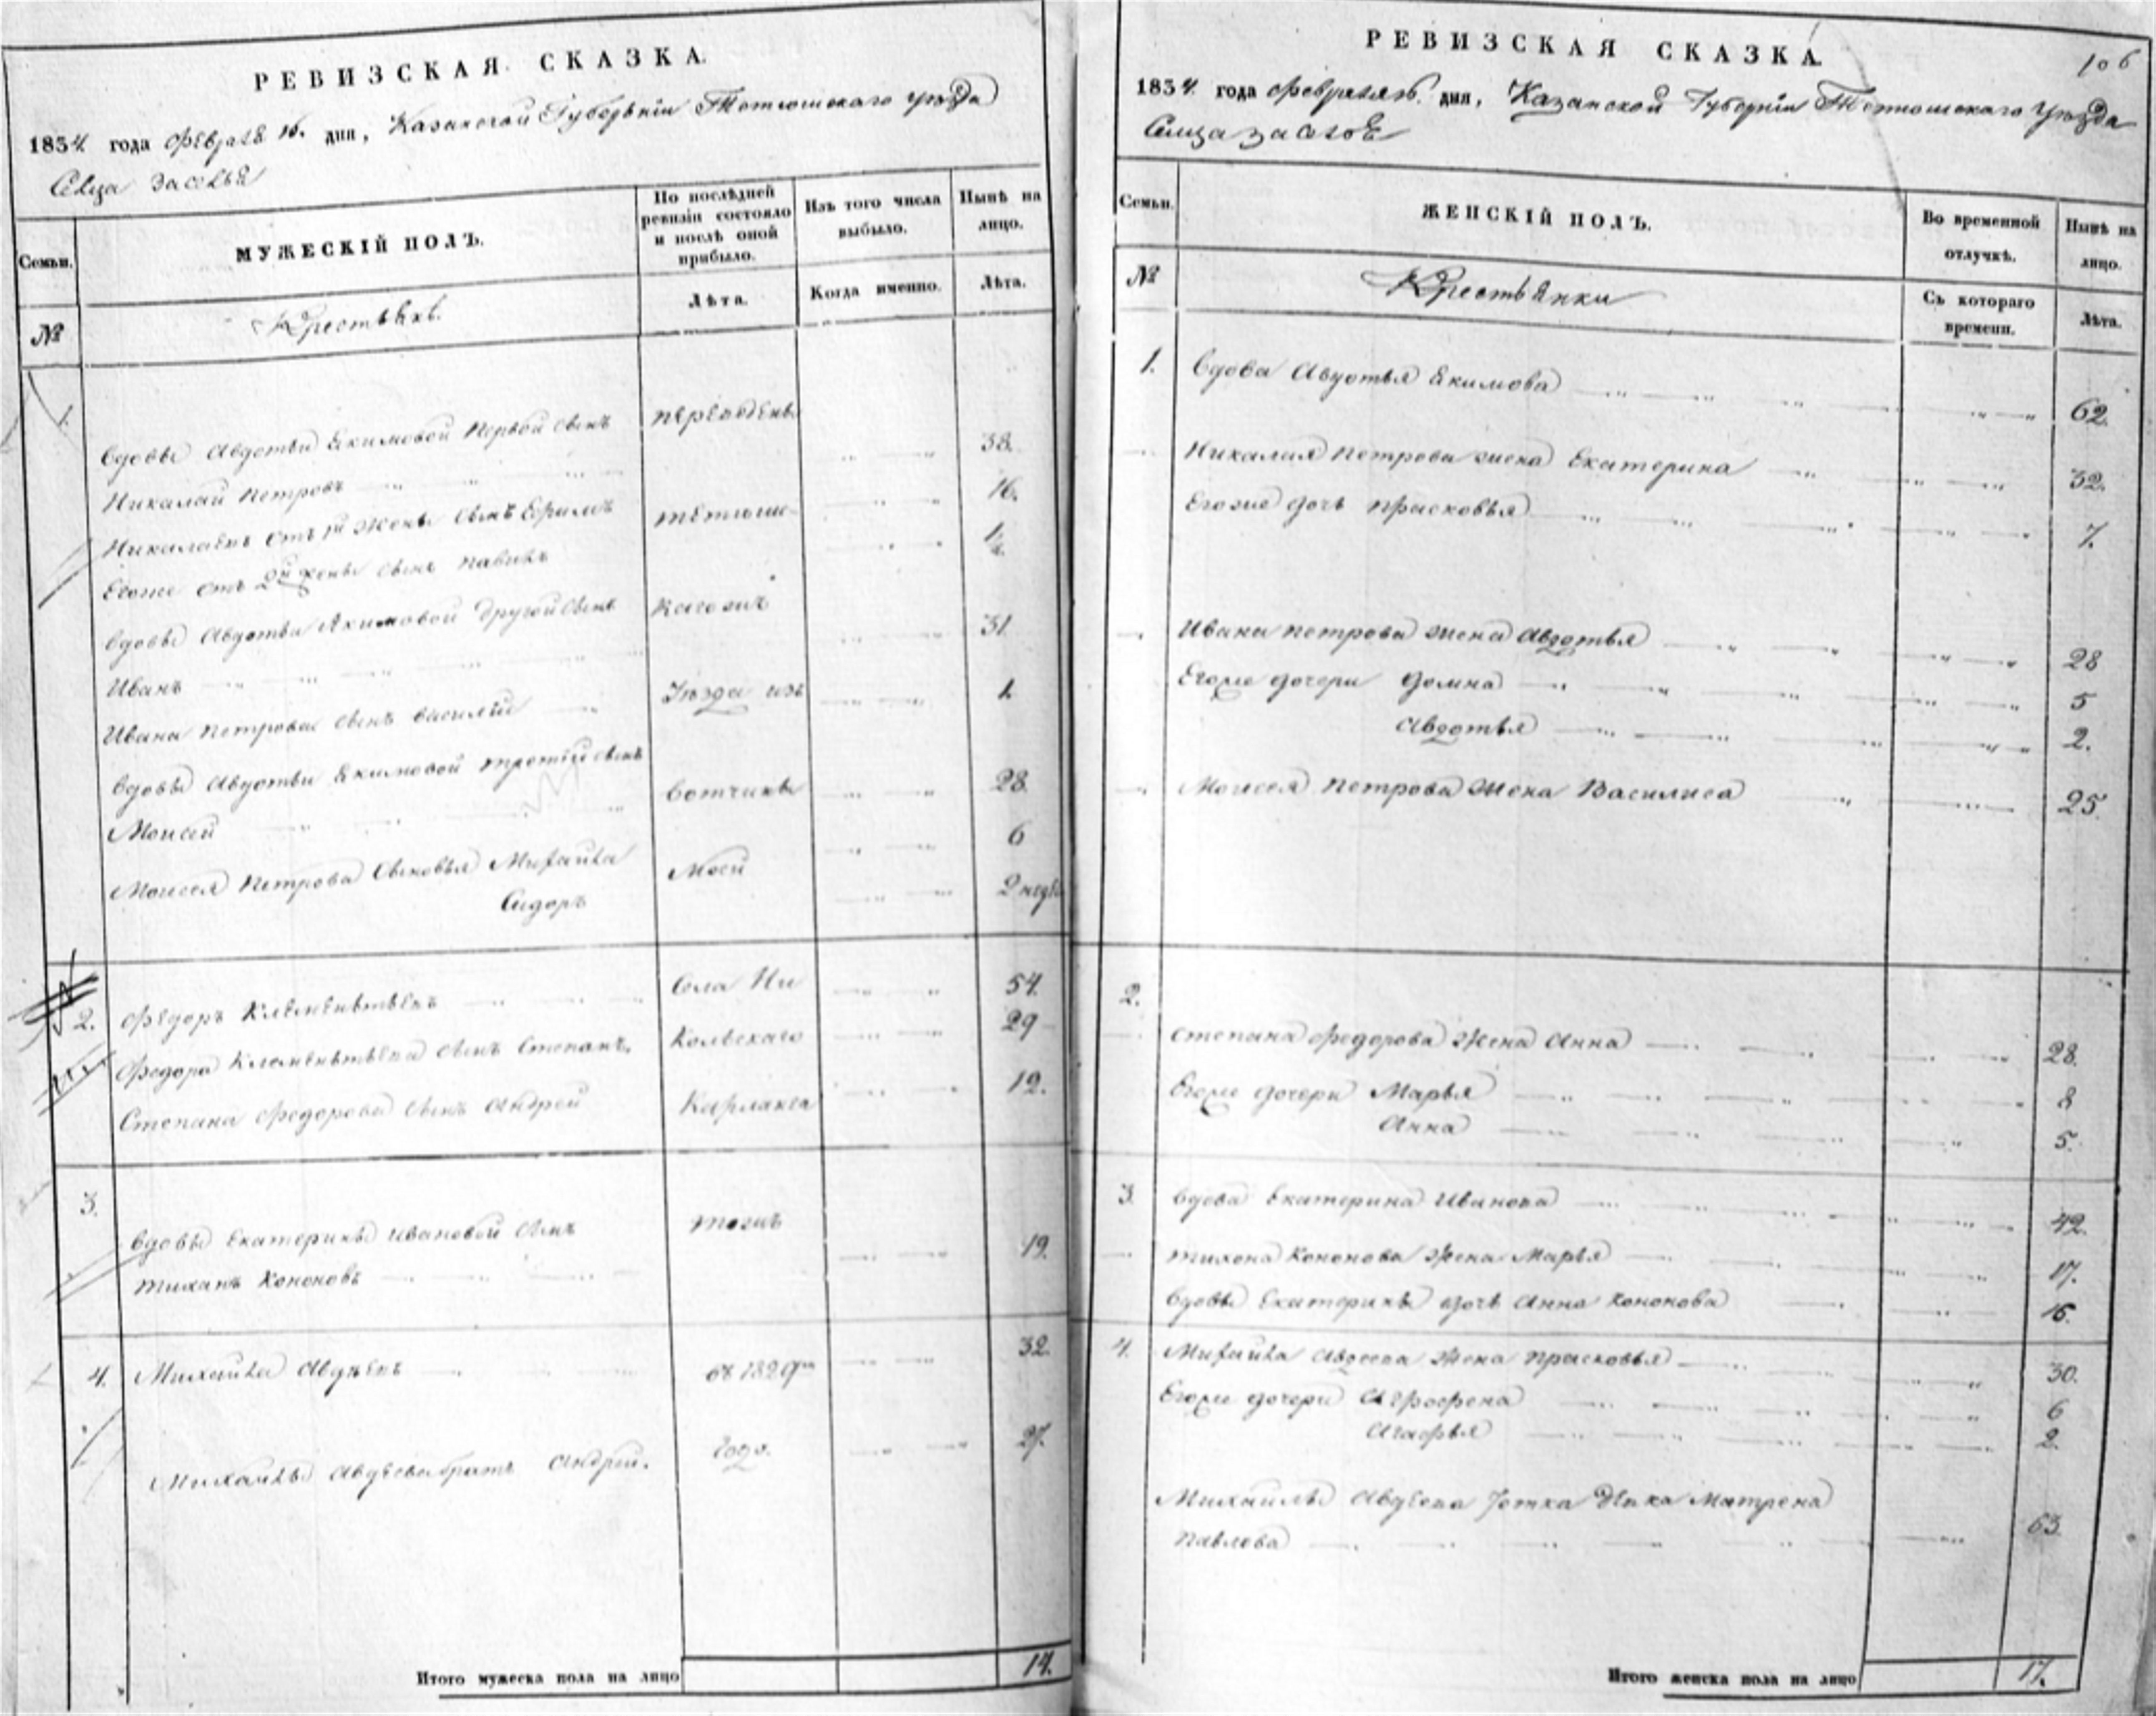 РЕВИЗСКАЯ СКАЗКА.
1834 года Февраля 16. дня, Казанской Губерніи Тетюшскаго уѣзда
Сельца
Семьи.
МУЖЕСКІЙ ПОЛЪ.
По послѣдней ревизіи состояло и послѣ оной прибыло.
Изъ того числа выбыло.
Нынѣ на лицо.
№
Крестьянъ.
Лѣта.
Когда именно.
Лѣта.
1.
Вдовы Авдотьи Екимовой Первой сынъ
переведены
Николай Петровъ
38.
Николаевъ отъ 1й жены сынъ Ефимъ
16.
Тетюш-
Егоже отъ 2й жены сынъ Павилъ
½.
Вдовы Авдотьи Якимовой другой сынъ
Иванъ
31
Ивана Петрова сынъ Василій
Уѣзда изъ
1.
Вдовы Авдотьи Екимовой третій сынъ
Моисей
вотчины
28.
Моисея Петрова сыновья Михайла
моей
6
Сидоръ
2 недѣ
2.
Федоръ Клементьевъ
села Ни
54.
Федора Клементьева сынъ Степанъ.
Кольскаго
29
Степана Федорова сынъ Андрей
Карланга
12.
3.
Вдовы Екатерины Ивановой сынъ
тожъ
Тиханъ Кононовъ
19.
4.
Михайла Авдѣевъ
въ 1829м
32.
Михайлы Авдѣева братъ Андрей.
годо.
27.
Итого мужеска пола на лицо
14.
РЕВИЗСКАЯ СКАЗКА.
106
1834. года Февраля 16. дня, Казанской Губерніи Тетюшскаго Уѣзда
Сельца
Семьи.
ЖЕНСКІЙ ПОЛЪ.
Во временной отлучкѣ.
Нынѣ на лицо.
№
Крестьянки
Съ котораго времени.
Лѣта.
1.
Вдова Авдотья Екимова
62.
Николая Петрова жена Екатерина
32.
Егоже дочь Прасковья
7.
Ивана Петрова жена Авдотья
28
Егоже дочери Домна
5
Авдотья
2.
Моисея Петрова жена Василиса
25.
2.
Степана Федорова жена Анна
28.
Егоже дочери Марья
8
Анна
5.
3.
Вдова Екатерина Иванова
42.
Тихона Кононова жена Марья
17.
Вдовы Екатерины дочь Анна Кононова
16.
4.
Михайла Авдеева жена Прасковья
30.
Егоже дочери Аграфена
6
Агафья
2.
Михайлы Авдѣева тетка дѣвка Матрена
Павлова
63.
Итого женска пола на лицо
17.